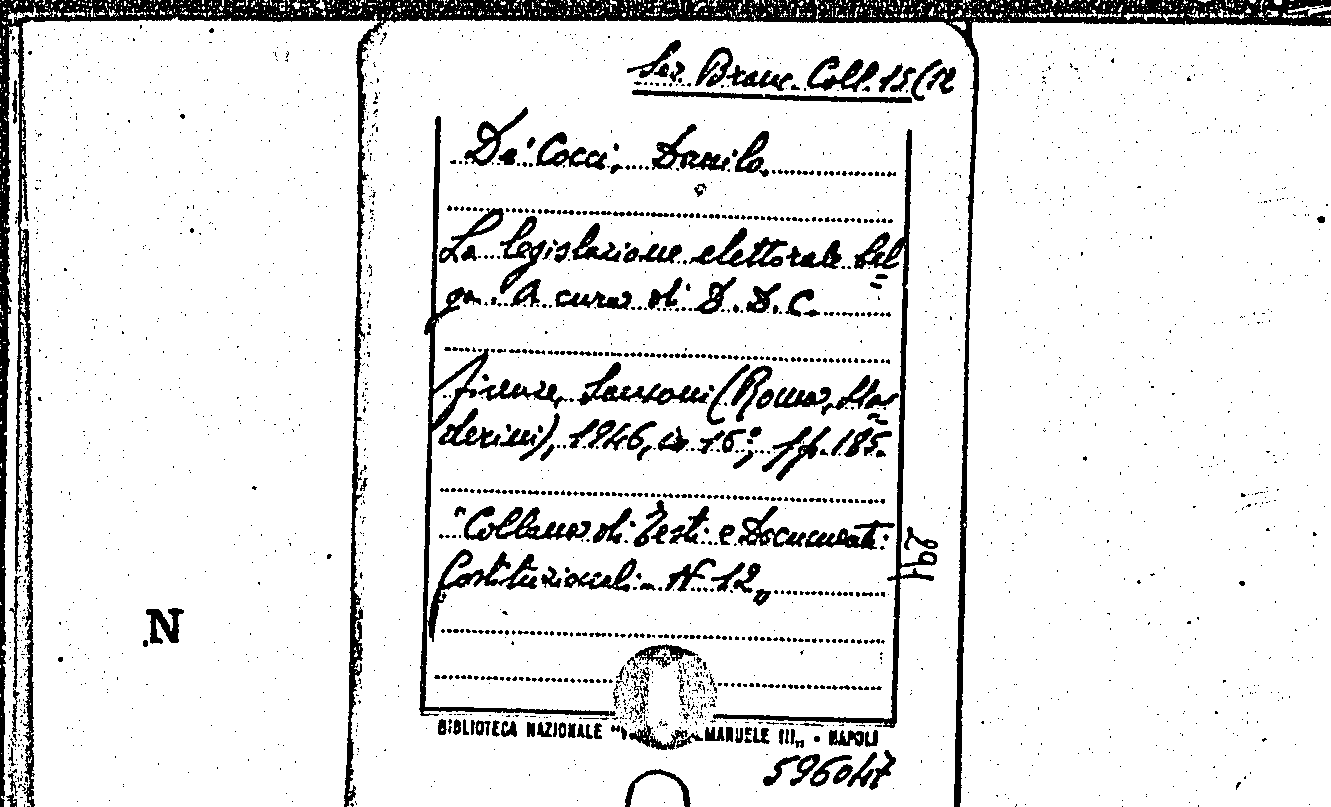 Sez. Branc. Coll. 15(12
De' Cocci, Danilo.
La legislazione elettorale bel=
ga. A cura di D. D. C.
Firenze, Sansoni (Roma, Sta=
derini), 1946, in 16°, pp. 185.
"Collana di Testi e Documenti
Costituzionali - N. 12„
N
BIBLIOTECA NAZIONALE "V EMANUELE III„ - NAPOLI
596047